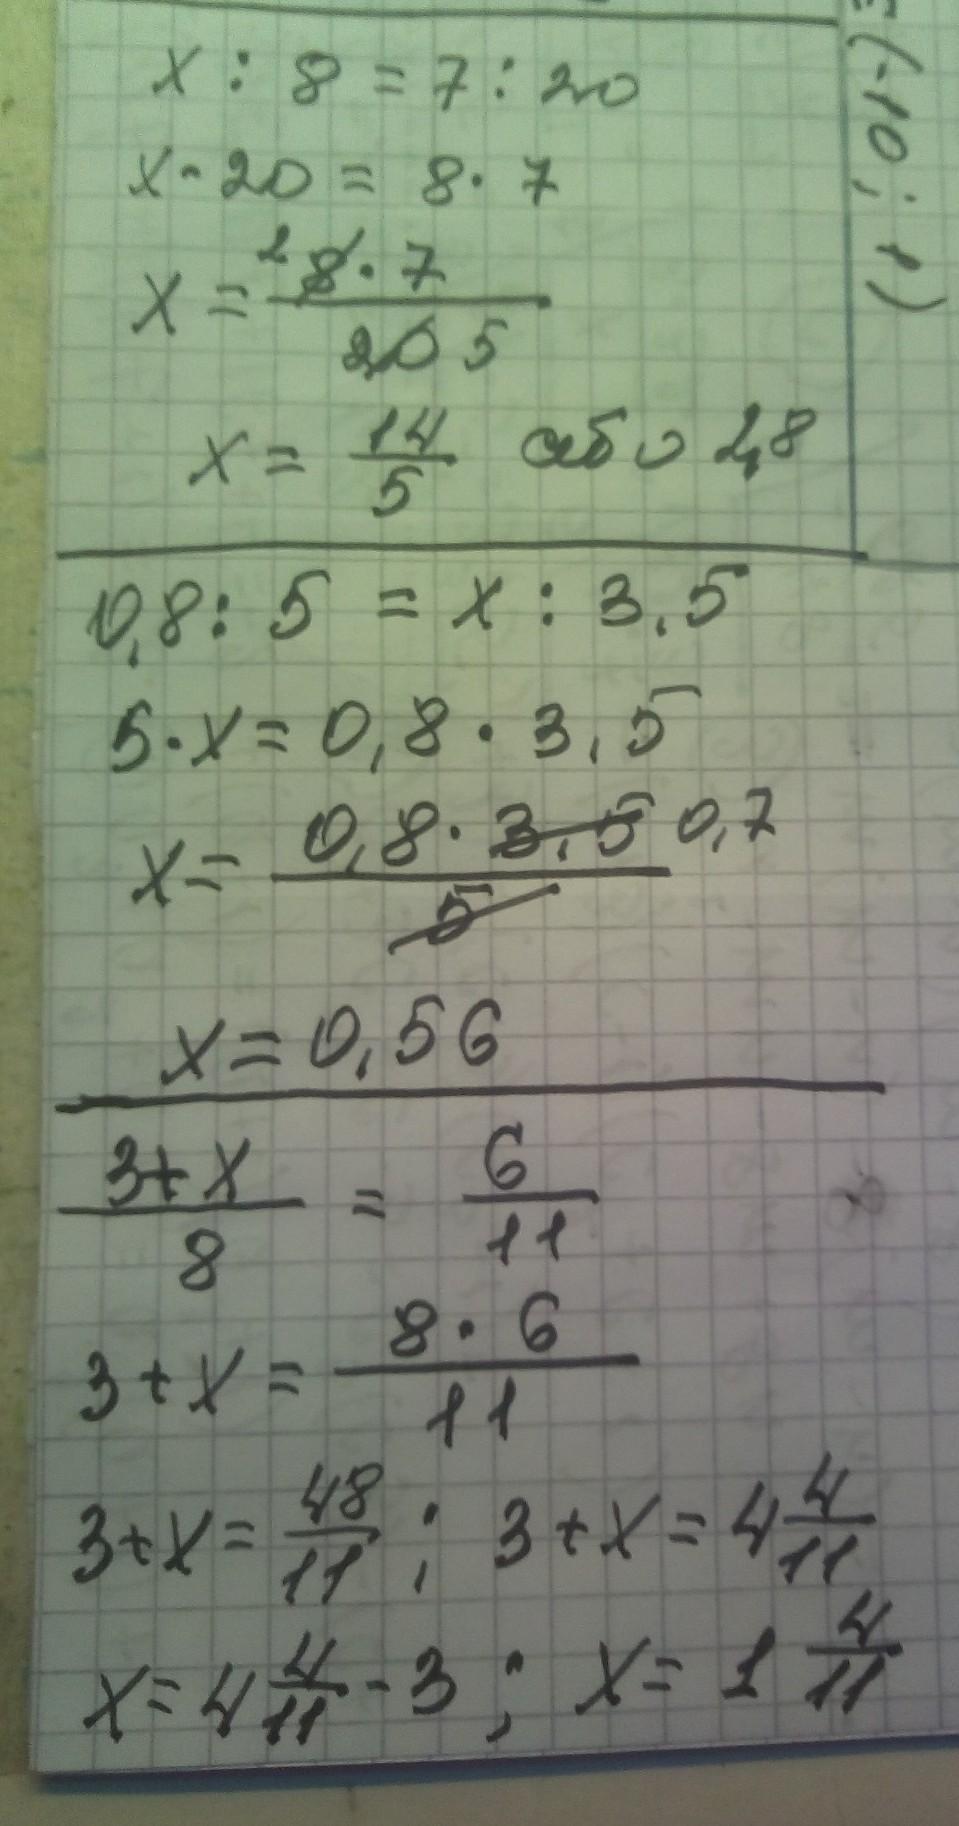 x : 8 = 7 : 20
x · 20 = 8 · 7
x = 2 8 · 7 / 20 5
x = 14/5 або 2,8
0,8 : 5 = x : 3,5
5 · x = 0,8 · 3,5
x = 0,8 · 3,5 0,7 / 5
x = 0,56
3 + x / 8 = 6/11
3 + x = 8 · 6 / 11
3 + x = 48/11 ; 3 + x = 4 4/11
x = 4 4/11 - 3 ; x = 1 4/11
(-10; 1)